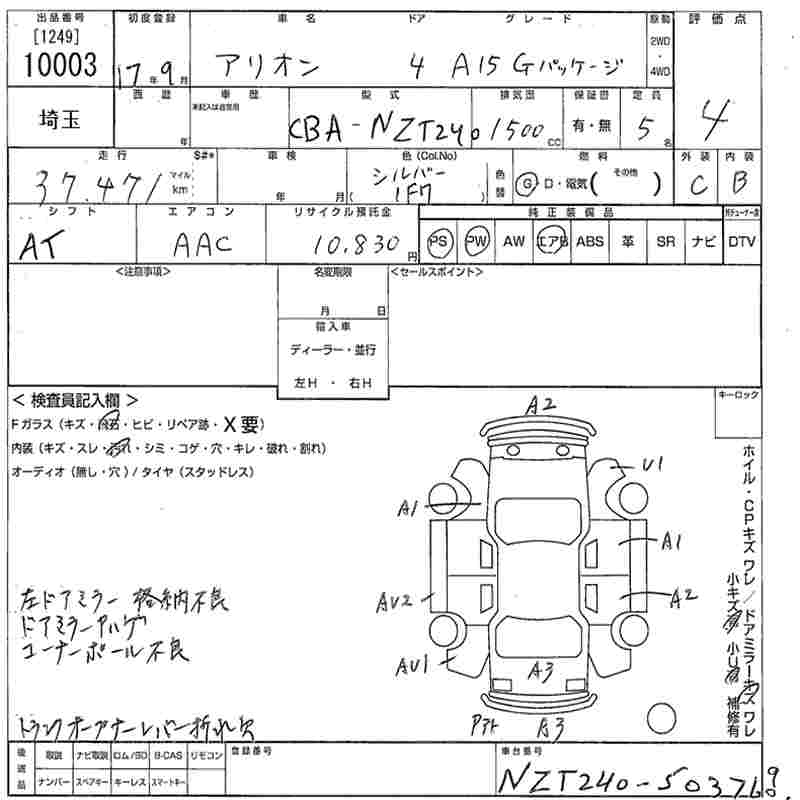 出品番号 初度登録 車名 ドア グレード 駆動 評価点
[1249]
10003 17年9月 アリオン 4 A15 Gパッケージ 2WD・4WD
埼玉 西暦 年 車歴 未記入は自家用 型式 排気量 保証書 定員
CBA-NZT240 1500cc 有・無 5名 4
走行 S#* 車検 色(Col.No) 燃料 外装 内装
37,471 マイル km 年 月 シルバー (1F7) 色替 G D・電気( その他 ) C B
シフト エアコン リサイクル預託金 純正装備品
AT AAC 10,830円 PS PW AW エアB ABS 革 SR ナビ DTV
<注意事項> 名変期限 <セールスポイント>
月 日
輸入車
ディーラー・並行
左H ・ 右H
< 検査員記入欄 > キーロック
Fガラス(キズ・ ・ヒビ・リペア跡・X要)
内装(キズ・スレ・汚れ・シミ・コゲ・穴・キレ・破れ・割れ)
オーディオ(無し・穴)/タイヤ(スタッドレス)
A2
U1
A1
A1
AU2
A2
AU1
A3
Pアト A3
ホイル・CPキズ ワレ/ドアミラーキズ ワレ
小キズ有 小U有 補修有
左ドアミラー格納不良
ドアミラーハゲ
コーナーポール不良
トランクオープナーレバー折れ欠
後送品 取説 ナビ取説 ロム/SD B-CAS リモコン 登録番号 車台番号
ナンバー スペアキー キーレス スマートキー NZT240-50376